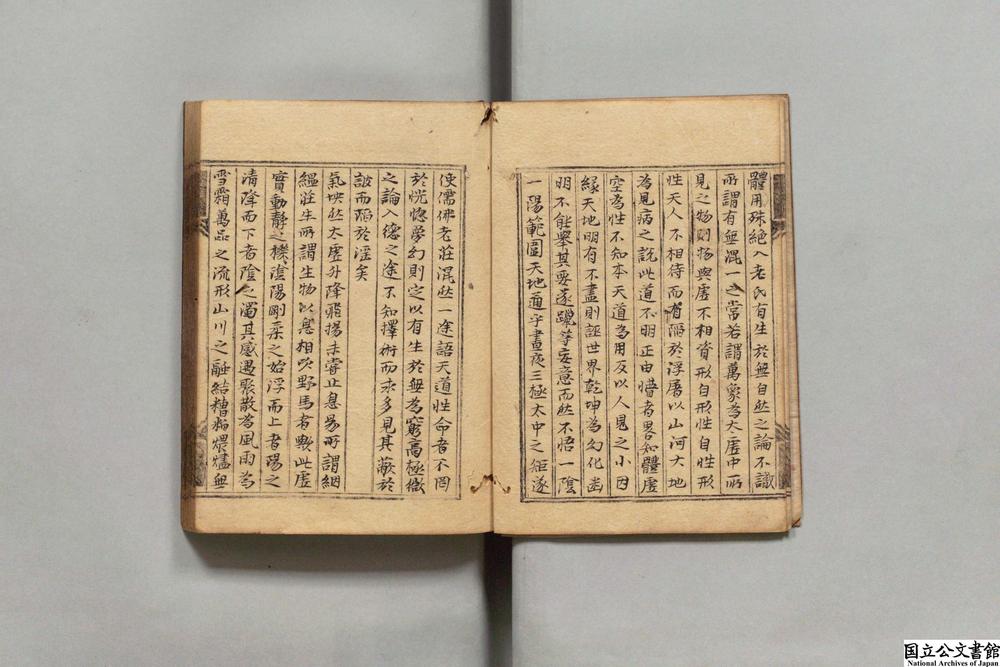 體用殊絶入老氏有生於無自然之論不識
所謂有無混一之常若謂萬象為大虛中所
見之物則物與虛不相資形自形性自性形
性天人不相待而有陷於浮屠以山河大地
為見病之說此道不明正由懵者畧知體虛
空為性不知本天道為用反以人見之小因
緣天地明有不盡則誣世界乾坤為幻化幽
明不能擧其要遂躐等妄意而然不悟一陰
一陽範圍天地通乎晝夜三極大中之矩遂
使儒佛老莊混然一途語天道性命者不罔
於恍惚夢幻則定以有生於無為窮高極微
之論入德之途不知擇術而求多見其蔽於
詖而陷於淫矣
氣坱然大虛升降飛揚未嘗止息易所謂絪
緼莊生所謂生物以息相吹野馬者歟此虛
實動靜之機陰陽剛柔之始浮而上者陽之
清降而下者陰之濁其感遇聚散為風雨為
雪霜萬品之流形山川之融結糟粕煨燼無
国立公文書館
National Archives of Japan